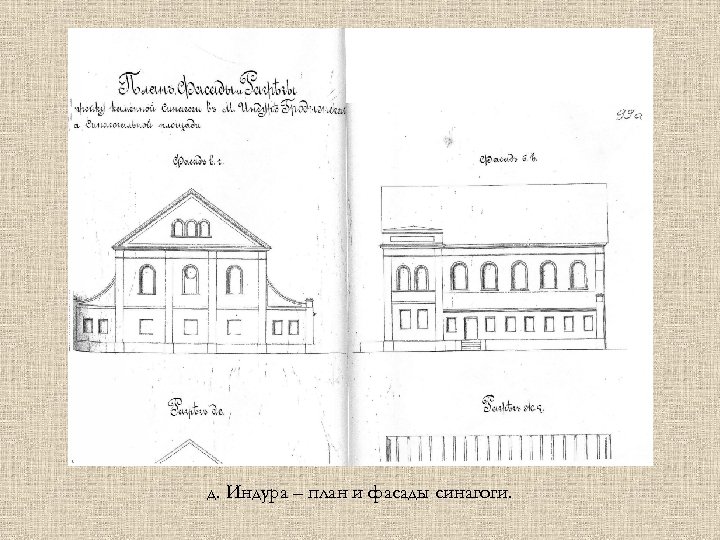 Планъ, Фасады и Разрѣзы
каменной Синагоги въ М. Индурѣ Гродненской
а Синагогальной площади
93а
Фасадъ
Фасадъ
Разрѣзъ
Разрѣзъ
д. Индура – план и фасады синагоги.